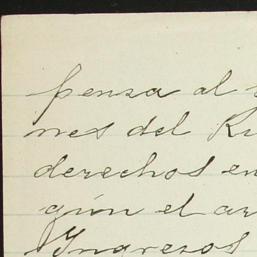 pensa al
nes del
derechos en
gún el ar
Ingresos